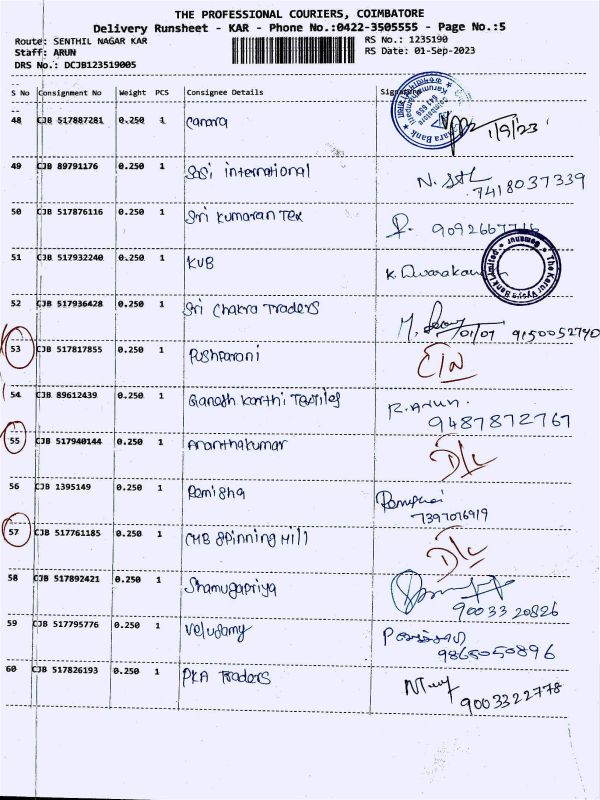 THE PROFESSIONAL COURIERS, COIMBATORE
Delivery Runsheet - KAR - Phone No.:0422-3505555 - Page No.:5
Route: SENTHIL NAGAR KAR RS No.: 1235190
Staff: ARUN RS Date: 01-Sep-2023
DRS No.: DCJB123519005
S No Consignment No Weight PCS Consignee Details
48 CJB 517887281 0.250 1 Canara 1/9/23
49 CJB 89791176 0.250 1 Sasi international
7418037339
50 CJB 517876116 0.250 1 Sri Kumaran Tex
51 CJB 517932240 0.250 1 KVB K. Dwaraka
The Karur Vysya Bank Limited
52 CJB 517936428 0.250 1 Sri Chakra Traders
9150052740
53 CJB 517817855 0.250 1 Pushparani
54 CJB 89612439 0.250 1 Ganesh Karthi Textiles R. Arun.
9487872767
55 CJB 517940144 0.250 1 Ananthakumar D/L
56 CJB 1395149 0.250 1 Remisha
7397016919
57 CJB 517761185 0.250 1 CMB Spinning Mill D/L
58 CJB 517892421 0.250 1 Shamugapriya
9003320826
59 CJB 517795776 0.250 1 Velusamy
9865050896
60 CJB 517826193 0.250 1 PKA Traders
9003322778